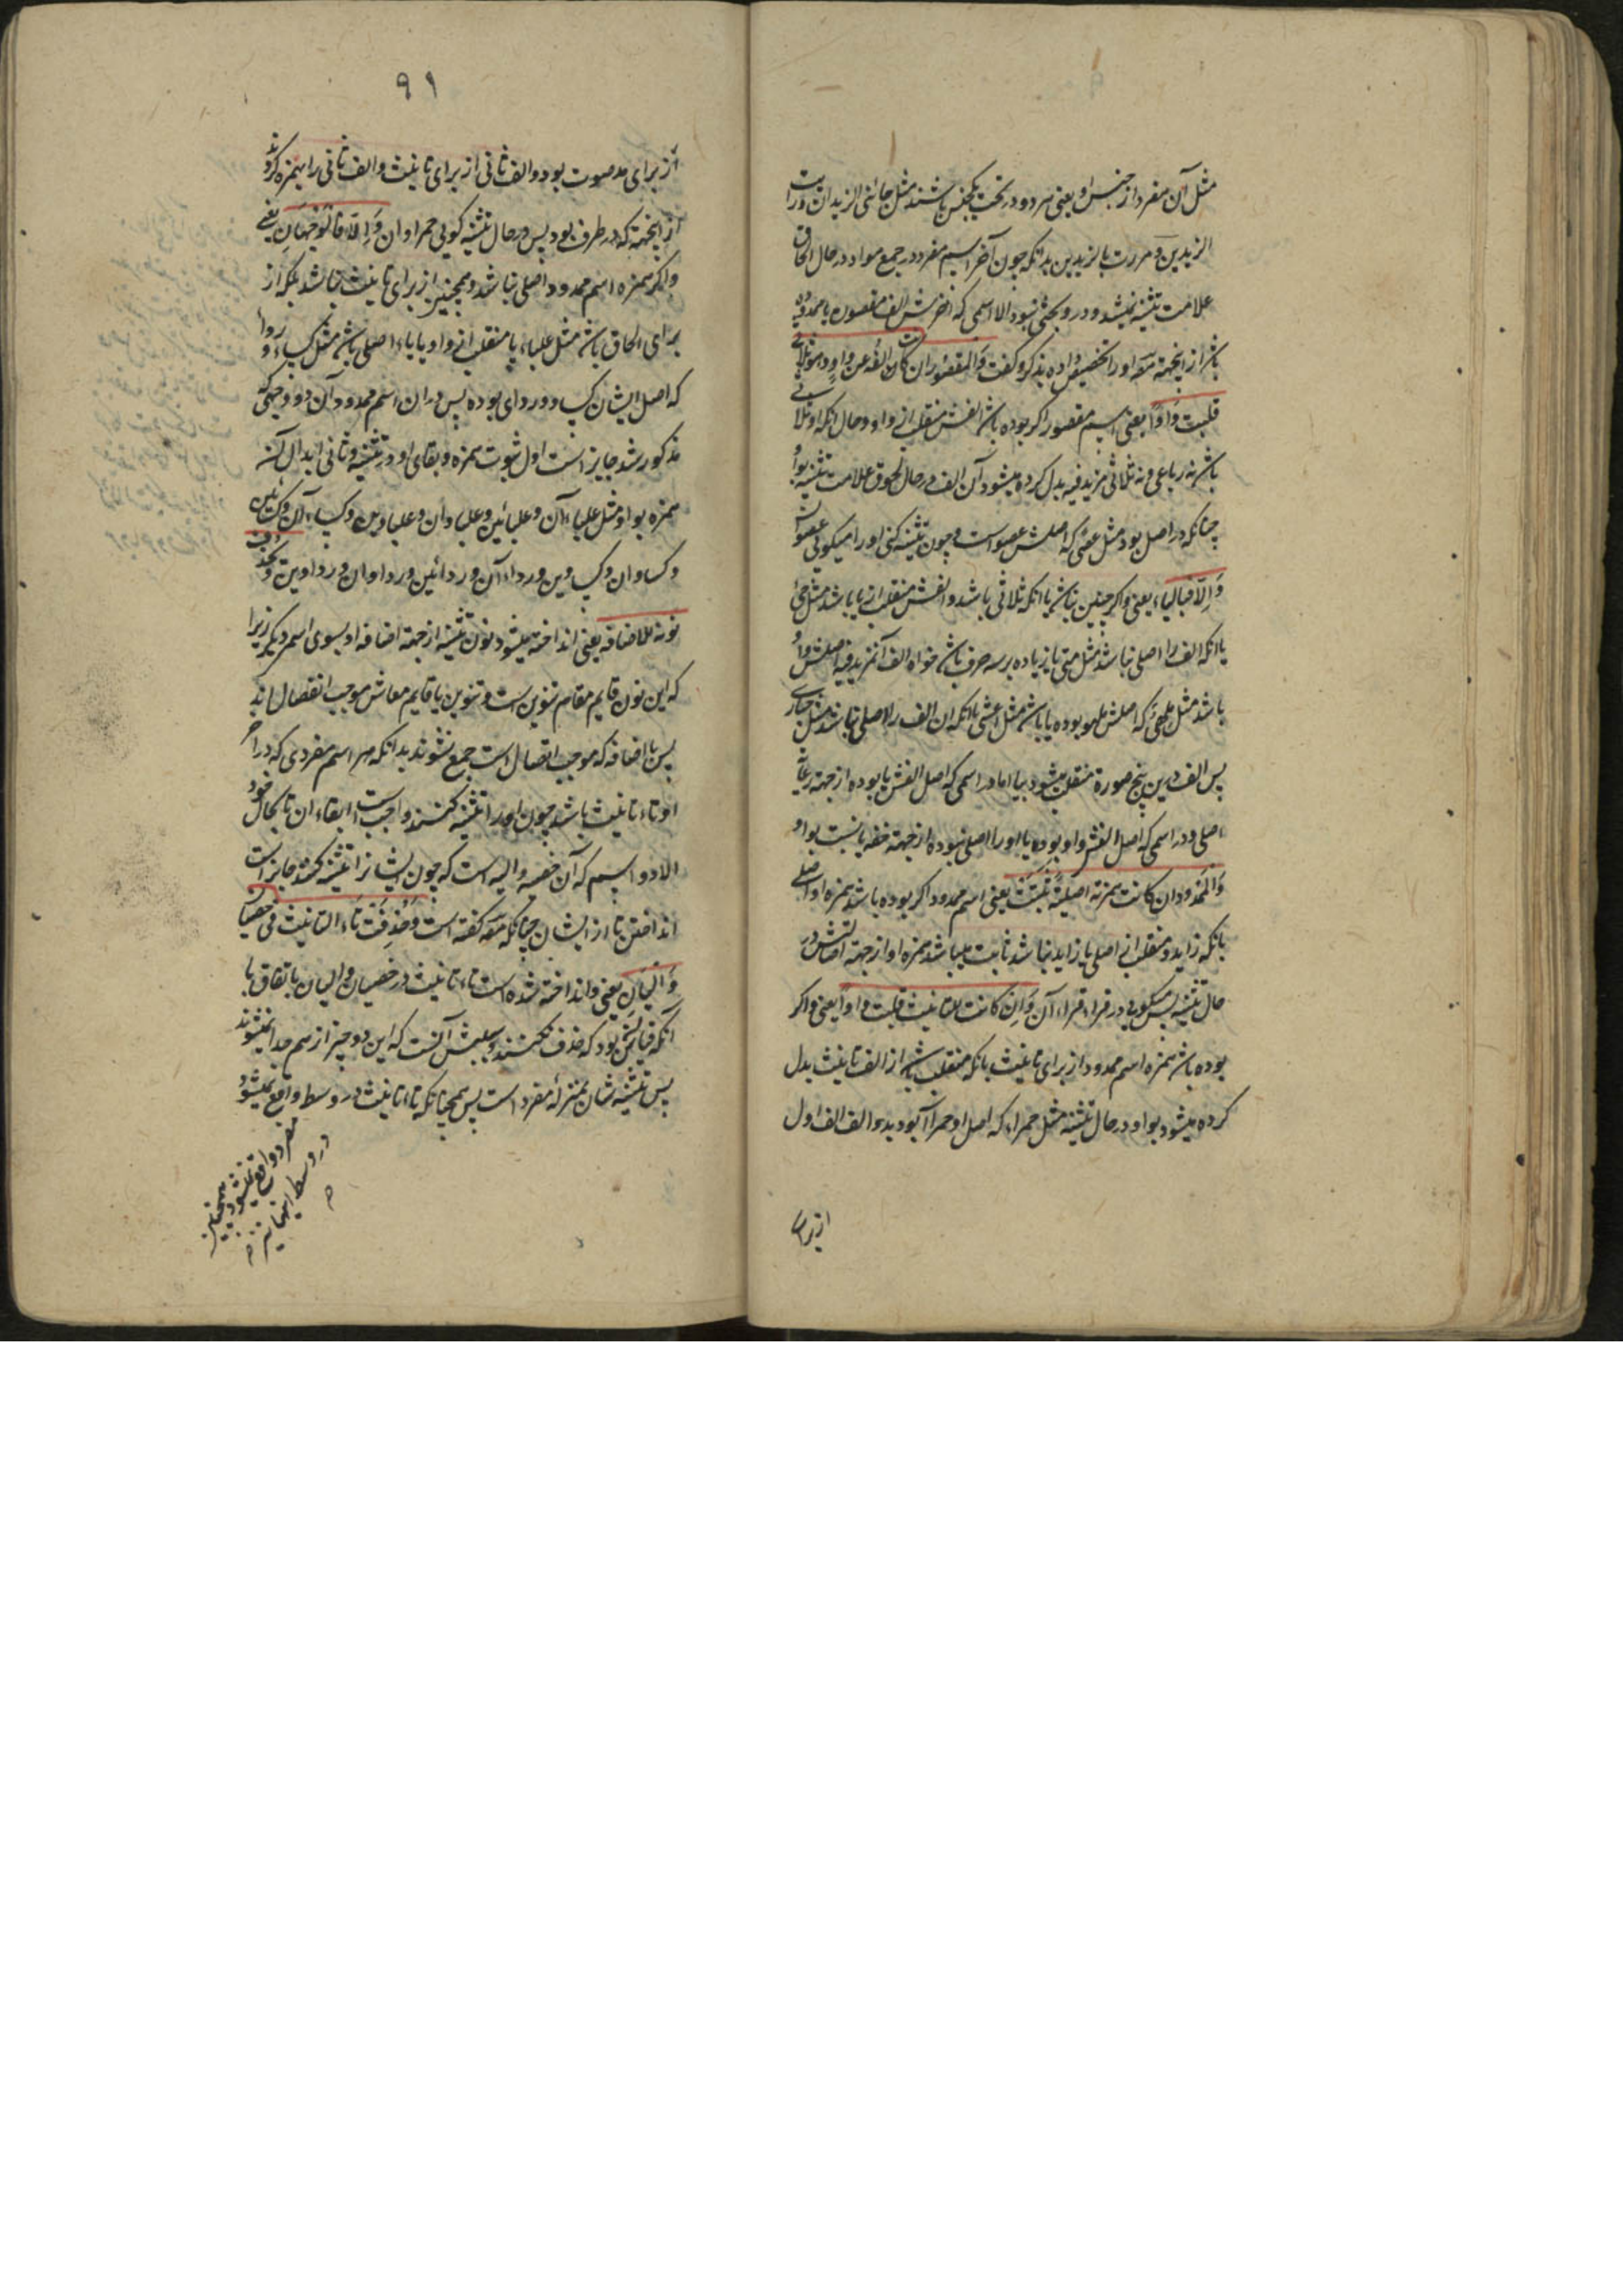 مثل آن مفرد از جنس او یعنی هر دو در تحت یکجنس باشند مثل جائنی الزیدان ورایت
الزیدین ومررت بالزیدین بدانکه چون آخر اسم مفرد در جمیع مواد در حال الحاق
علامت تثنیه نمیشود در و بحثی نبود الا اسمی که اخرش الف مقصوره یا ممدوده
باشد از اینجهة مص اورا تخصیص داده بذکر و کفت والمقصور ان کان الفه عن واو وهو ثلاثی
قلبت واوا یعنی اسم مقصور اکر بوده باشد الفش منقلب از واو و حال انکه او ثلاثی
باشد نه رباعی و نه ثلاثی مزید فیه بدل کرده میشود آن الف در حال لحوق علامت تثنیه بواو
چنانکه در اصل بود مثل عصی که اصلش عصو است و چون تثنیه کنی اورا میکوئی عصوان
والا فبالیاء یعنی واکر چنین نباشد یا انکه ثلاثی باشد والفش منقلب از یا باشد مثل رحی
یا انکه الف را اصلی نباشد مثل متی یا زیاده بر سه حرف باشد خواه الف آنمزید فیه اصلش واو
باشد مثل ملهی که اصلش ملهو بوده یا یا باشد مثل اعشی یا انکه ان الف را اصلی نباشد مثل حباری
پس الف درین پنج صورة منقلب میشود بیا اما در اسمی که اصل الفش یا بوده از جهة رعایت
اصلی و در اسمی که اصل الفش واو بوده یا اورا اصلی نبوده از جهة خفه یا نسبت بواو
والممدود ان کانت همزته اصلیة تثبت یعنی اسم ممدود اکر بوده باشد همزه او اصلی
بانکه زاید و منقلب از اصلی یا زاید نباشد ثابت میباشد همزه او از جهة اصالتش در
حال تثنیه پس میکویی در قراء قراءآن وان کانت للتانیث قلبت واوا یعنی واکر
بوده باشد همزه اسم ممدود از برای تانیث بانکه منقلب باشد از الف تانیث بدل
کرده میشود بواو در حال تثنیه مثل حمراء که اصل او حمراآ بود بدو الف الف اول
از برای
۹۱
از برای مد صوت بود و الف ثانی از برای تانیث والف ثانی را همزه کردند
از اینجهة که در طرف بود پس در حال تثنیه کویی حمراوان والا فالوجهان یعنی
واکر همزه اسم ممدود اصلی نباشد و همچنین از برای تانیث نباشد بلکه از
برای الحاق باشد مثل علباء یا منقلب از واو یا یاء اصلی باشد مثل کساء و رداء
که اصل ایشان کساو و ردای بوده پس در ان اسم ممدود آن دو وجهی که
مذکور شد جایز است اول ثبوت همزه و بقای او در تثنیه و ثانی ابدال آن
همزه بواو مثل علباءآن و علبائین و علباوان و علباوین و کساءآن و کسائین
و کساوان و کساوین و رداءآن و ردائین و رداوان و رداوین و تحذف
نونه للاضافه یعنی انداخته میشود نون تثنیه از جهة اضافه او بسوی اسم دیکر زیرا
که این نون قایم مقام تنوین است و تنوین یا قایم مقامش موجب انفصال اند
پس با اضافه که موجب اتصال است جمع نشوند بدانکه هر اسم مفردی که در اخر
او تاء تانیث باشد چون اورا تثنیه کنند واجبست ابقاء ان تا بحال خود
الا دو اسم که آن خصیه و الیه است که چون ایشانرا تثنیه کنند جایز است
انداختن تا از ایشان چنانکه مص کفته است وحذفت تاء التانیث فی خصیان
والیان یعنی وانداخته شده است تاء تانیث در خصیان والیان باتفاق با
آنکه قیاس این بود که حذف نکنند و سببش آنست که این دو چیز از هم جدا نمیشوند
پس تثنیه شان بمنزله مفرد است پس همچنانکه تاء تانیث در وسط واقع نمیشود
مفرد واقع نمیشود همچنین
در وسط اینها نیز